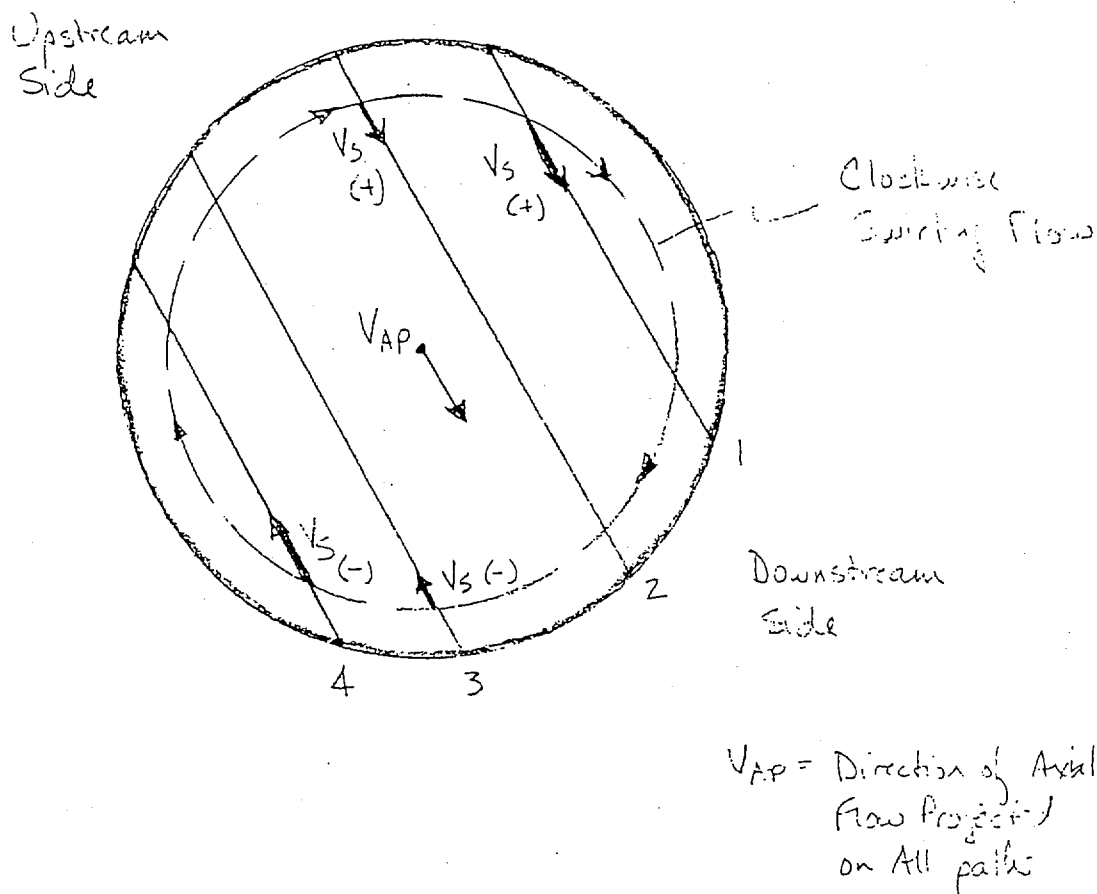 Upstream
Side
Vs
(+)
Vs
(+)
Clockwise
Swirling Flow
VAP
1
Vs
(-)
Vs (-)
2
Downstream
Side
4
3
VAP = Direction of Axial
Flow Projected
on All paths